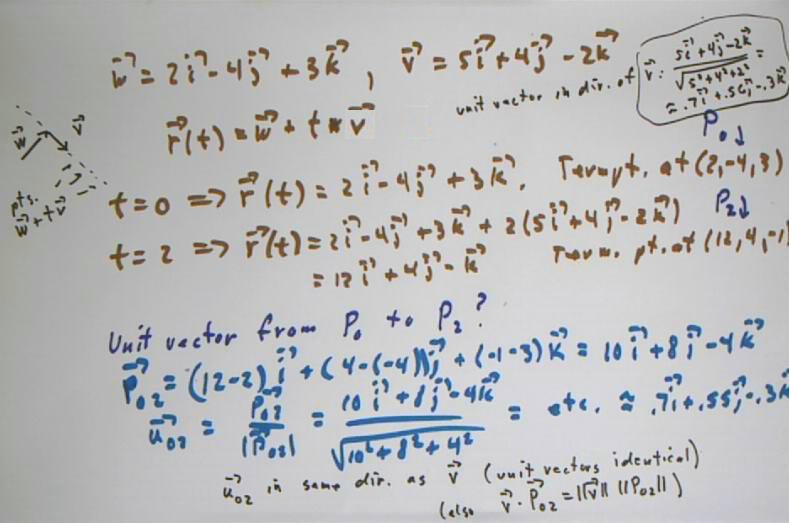 w⃗ = 2i⃗ - 4j⃗ + 3k⃗, v⃗ = 5i⃗ + 4j⃗ - 2k⃗
unit vector in dir. of v⃗: (5i⃗ + 4j⃗ - 2k⃗) / √(5² + 4² + 2²) =
≈ .7i⃗ + .5 j⃗ - .3k⃗
r⃗(t) = w⃗ + t v⃗
w⃗ v⃗
pts.
w⃗ + t v⃗
P₀↓
t = 0 => r⃗(t) = 2i⃗ - 4j⃗ + 3k⃗. Term pt. at (2, -4, 3)
P₂↓
t = 2 => r⃗(t) = 2i⃗ - 4j⃗ + 3k⃗ + 2(5i⃗ + 4j⃗ - 2k⃗)
= 12i⃗ + 4j⃗ - k⃗ Term. pt. at (12, 4, -1)
Unit vector from P₀ to P₂?
P⃗₀₂ = (12-2)i⃗ + (4-(-4))j⃗ + (-1-3)k⃗ = 10i⃗ + 8j⃗ - 4k⃗
u⃗₀₂ = P⃗₀₂ / |P⃗₀₂| = (10i⃗ + 8j⃗ - 4k⃗) / √(10² + 8² + 4²) = etc. ≈ .7i⃗ + .55j⃗ - .3k⃗
u⃗₀₂ in same dir. as v⃗ (unit vectors identical)
(also v⃗ · P⃗₀₂ = ||v⃗|| ||P₀₂||)